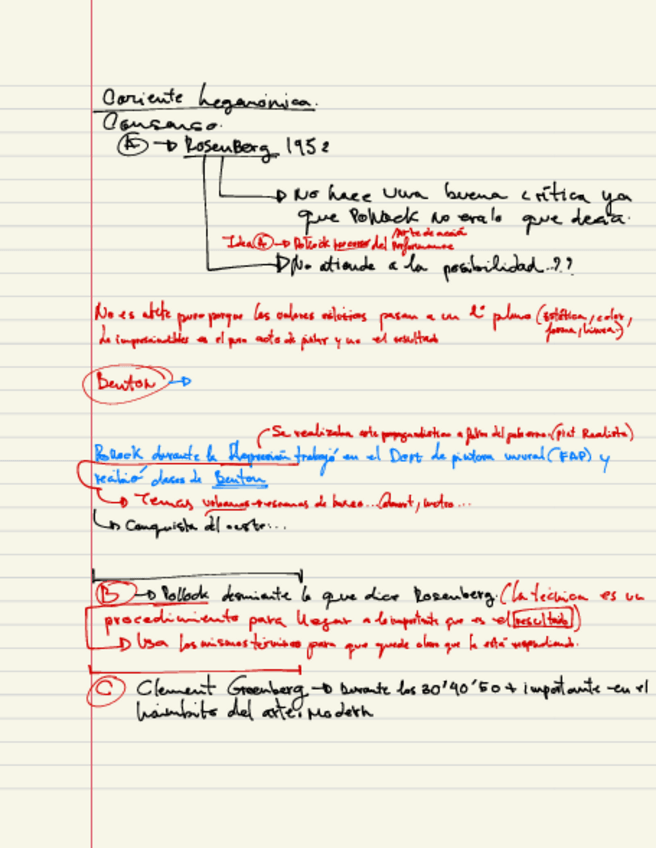 Coriente hegemónica.
Consenso.
A → Rosenberg 1952
→ No hace una buena crítica ya
que Pollock no era lo que decía.
Arte de acción
Idea A → Pollock del Performance
→ No atiende a la posibilidad..??
No es arte puro porque los valores pasan a un 2º plano (estética, color,
forma, línea.)
en el puro acto de pintar y no el resultado
Benton →
Se realizaba arte propagandístico a favor del gobierno. (Realista)
Pollock durante la Depresión trabajó en el Dept de pintura mural (FAP) y
recibió clases de Benton
→ Temas urbanos escenas de
→ Conquista del oeste...
B → Pollock desmiente lo que dice Rosenberg. (la técnica es un
procedimiento para llegar a lo importante que es el resultado)
→ Usa los mismos términos para que quede claro que le está respondiendo.
C Clement Greenberg → Durante los 30'40'50 + importante en el
hámbito del arte. Modern